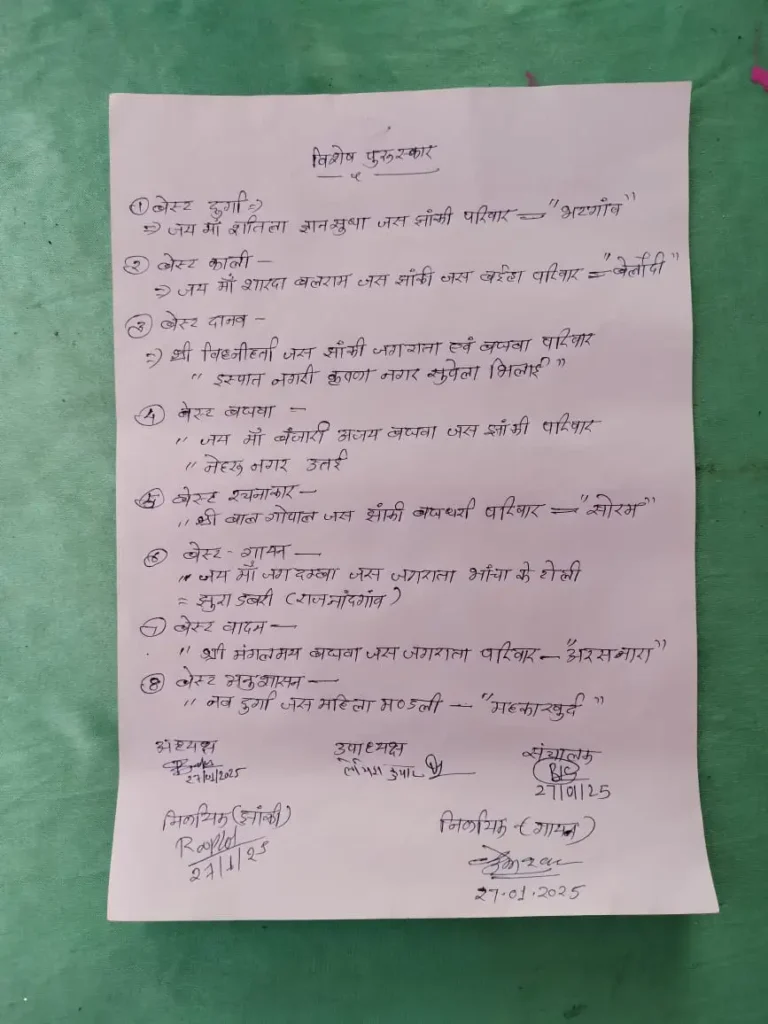 विशेष पुरुस्कार
① बेस्ट दुर्गा ⇒
⇒ जय माँ शीतला ज्ञान सुधा जस झांकी परिवार = "भटगांव"
② बेस्ट काली -
⇒ जय माँ शारदा बलराम जस झांकी जस परिवार = "बेलौदी"
③ बेस्ट दानव -
⇒ श्री विघ्नहर्ता जस झांकी जगराता एवं बघवा परिवार
" इस्पात नगरी कृष्णा नगर सुपेला भिलाई "
④ बेस्ट बघवा -
" जय माँ बंजारी अजय बघवा जस झांकी परिवार
" नेहरू नगर उतई
⑤ बेस्ट रचनाकार -
" श्री बाल गोपाल जस झांकी परिवार = "सोरम"
⑥ बेस्ट - गायन -
" जय माँ जगदम्बा जस जगराता भांचा के टोली
= झुरा डबरी (राजनांदगांव)
⑦ बेस्ट वादन -
" श्री मंगलमय बघवा जस जगराता परिवार - "अरसनारा"
⑧ बेस्ट अनुशासन -
" नव दुर्गा जस महिला मण्डली - "महकाखुर्द"
अध्यक्ष उपाध्यक्ष संचालक
27/01/2025 27/01/25
निर्णायक (झांकी) निर्णायक - (गायन)
27/1/25
27.01.2025